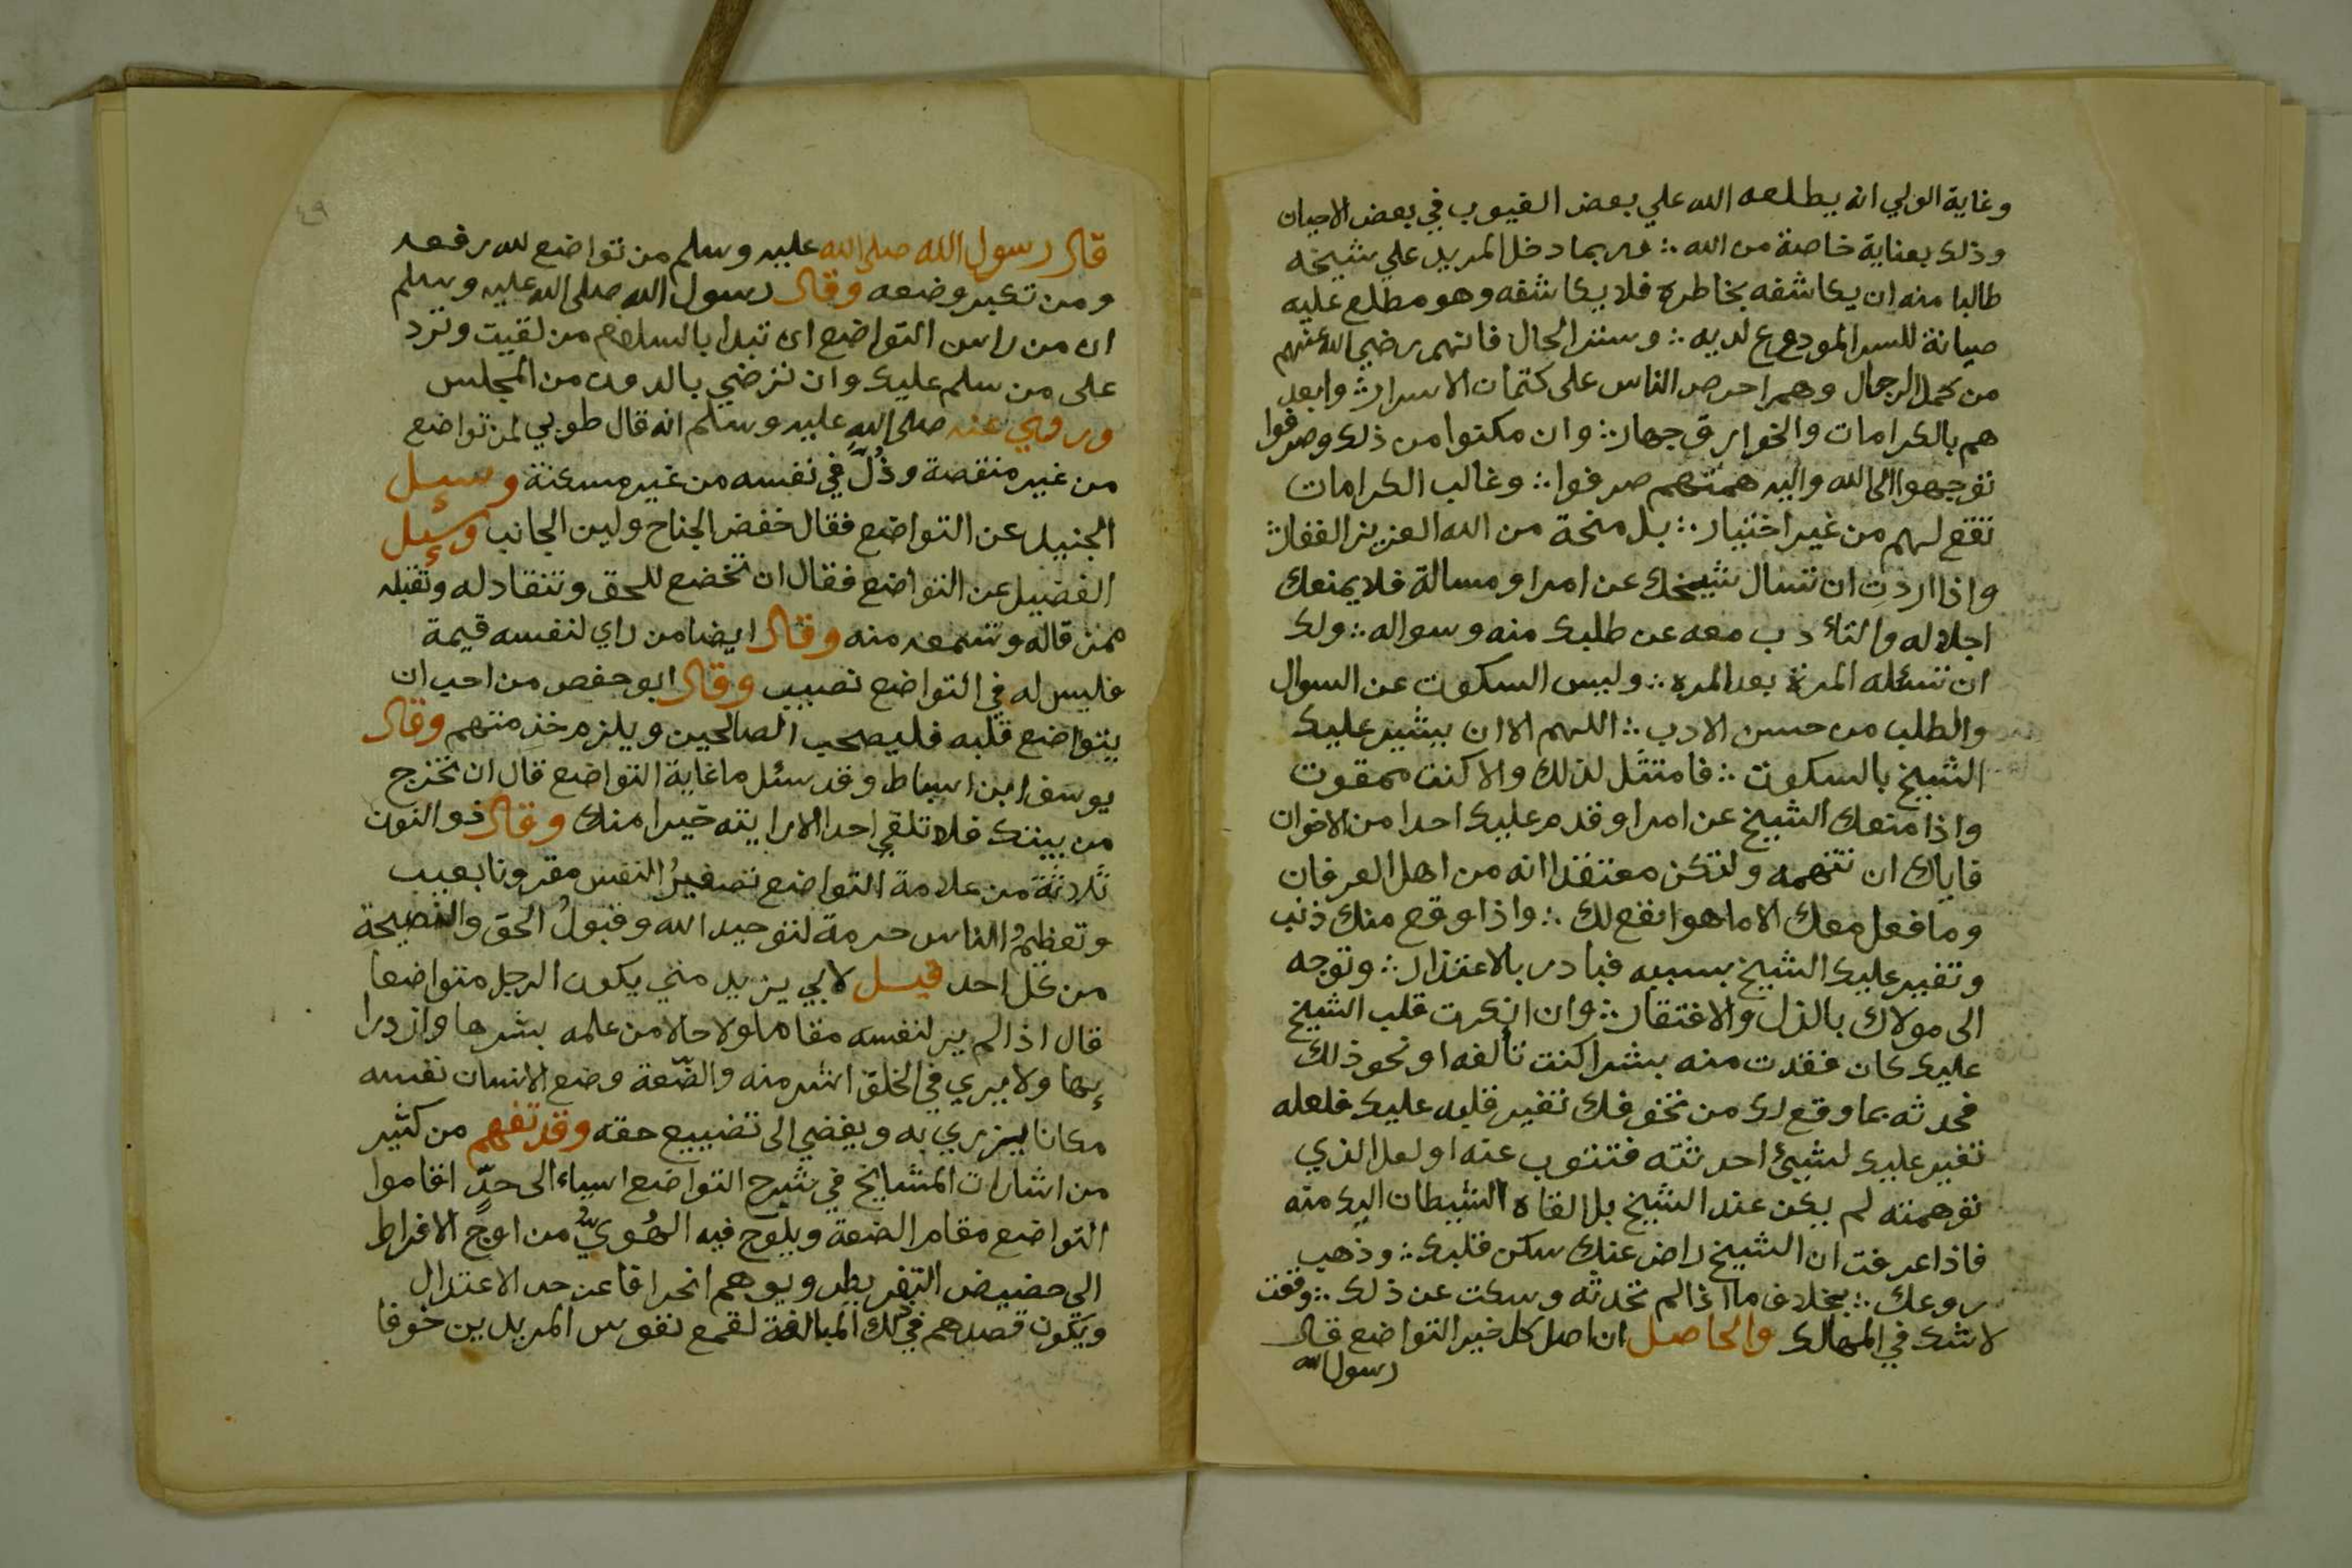 وغاية الولي انه يطلعه الله علي بعض الغيوب في بعض الاحيان
وذلك بعناية خاصة من الله ∴ وربما دخل المريد علي شيخه
طالبا منه ان يكاشفه بخاطره فلا يكاشفه وهو مطلع عليه
صيانة للسر المودوع لديه ∴ وستر الحال فانهم رضي الله عنهم
من كمل الرجال وهم احرص الناس على كتمان الاسرار ∴ وابعد
هم بالكرامات والخوارق جهار ∴ وان مكنوا من ذلك وصرفوا
توجهوا الى الله واليه همتهم صرفوا ∴ وغالب الكرامات
تقع لهم من غير اختيار ∴ بل منحة من الله العزيز الغفار ∴
واذا اردت ان تسال شيخك عن امر او مسالة فلا يمنعك
اجلاله والتأدب معه عن طلبك منه وسواله ∴ ولك
ان تسئله المرة بعد المره ∴ وليس السكوت عن السوال
والطلب من حسن الادب ∴ اللهم الا ان يشير عليك
الشيخ بالسكوت ∴ فامتثل لذلك والا كنت ممقوت
واذا منعك الشيخ عن امر او قدم عليك احدا من الاخوان
فاياك ان تتهمه ولتكن معتقدا انه من اهل العرفان
وما فعل معك الا ما هو انفع لك ∴ واذا وقع منك ذنب
وتغير عليك الشيخ بسببه فبادر بالاعتذار ∴ وتوجه
الى مولاك بالذل والافتقار ∴ وان انكرت قلب الشيخ
عليك كان فقدت منه بشرا كنت تألفه او نحو ذلك
فحدثه بما وقع لك من تخوفك تغير قلبه عليك فلعله
تغير عليك لشيئ احدثته فتتوب عنه او لعل الذي
توهمته لم يكن عند الشيخ بل القاه الشيطان اليك منه
فاذا عرفت ان الشيخ راض عنك سكن قلبك ∴ وذهب
روعك ∴ بخلاف ما اذا لم تحدثه وسكت عن ذلك ∴ وقعت
لا شك في المهالك والحاصل ان اصل كل خير التواضع قال
رسول الله
٤٩
قال رسول الله صلى الله عليه وسلم من تواضع لله رفعه
ومن تكبر وضعه وقال رسول الله صلى الله عليه وسلم
ان من راس التواضع ان تبدا بالسلام من لقيت وترد
على من سلم عليك وان ترضي بالدون من المجلس
وروي عنه صلى الله عليه وسلم انه قال طوبي لمن تواضع
من غير منقصة وذُلّ في نفسه من غير مسكنة وسيل
الجنيد عن التواضع فقال خفض الجناح ولين الجانب وسيل
الفضيل عن التواضع فقال ان تخضع للحق وتنقاد له وتقبله
ممن قاله وتسمعه منه وقال ايضا من راي لنفسه قيمة
فليس له في التواضع نصيب وقال ابو حفص من احب ان
يتواضع قلبه فليصحب الصالحين ويلزم خدمتهم وقال
يوسف ابن اسباط وقد سئل ما غاية التواضع قال ان تخرج
من بيتك فلا تلقي احدا الا رايته خيرا منك وقال ذو النون
ثلاثة من علامة التواضع تصغيرُ النفس مقرونا بعيب
وتعظيمُ الناس حرمة لتوحيد الله وقبولُ الحق والنصيحة
من كل احد قيل لابي يزيد متي يكون الرجل متواضعا
قال اذا لم ير لنفسه مقاما ولا حالا من علمه بشرها وازدرا
ٕبها ولا يري في الخلق اشر منه والضّعة وضع الانسان نفسه
مكانا يزري به ويفضي الى تضييع حقه وقد تفهم من كثير
من اشارات المشايخ في شرح التواضع اسياء الى حدّ اقاموا
التواضع مقام الضعة ويلوح فيه الهُويُّ من اوج الافراط
الى حضيض التفريط ويوهم انحرافا عن حد الاعتدال
ويكون قصدهم في ذلك المبالغة لقمع نفوس المريدين خوفا